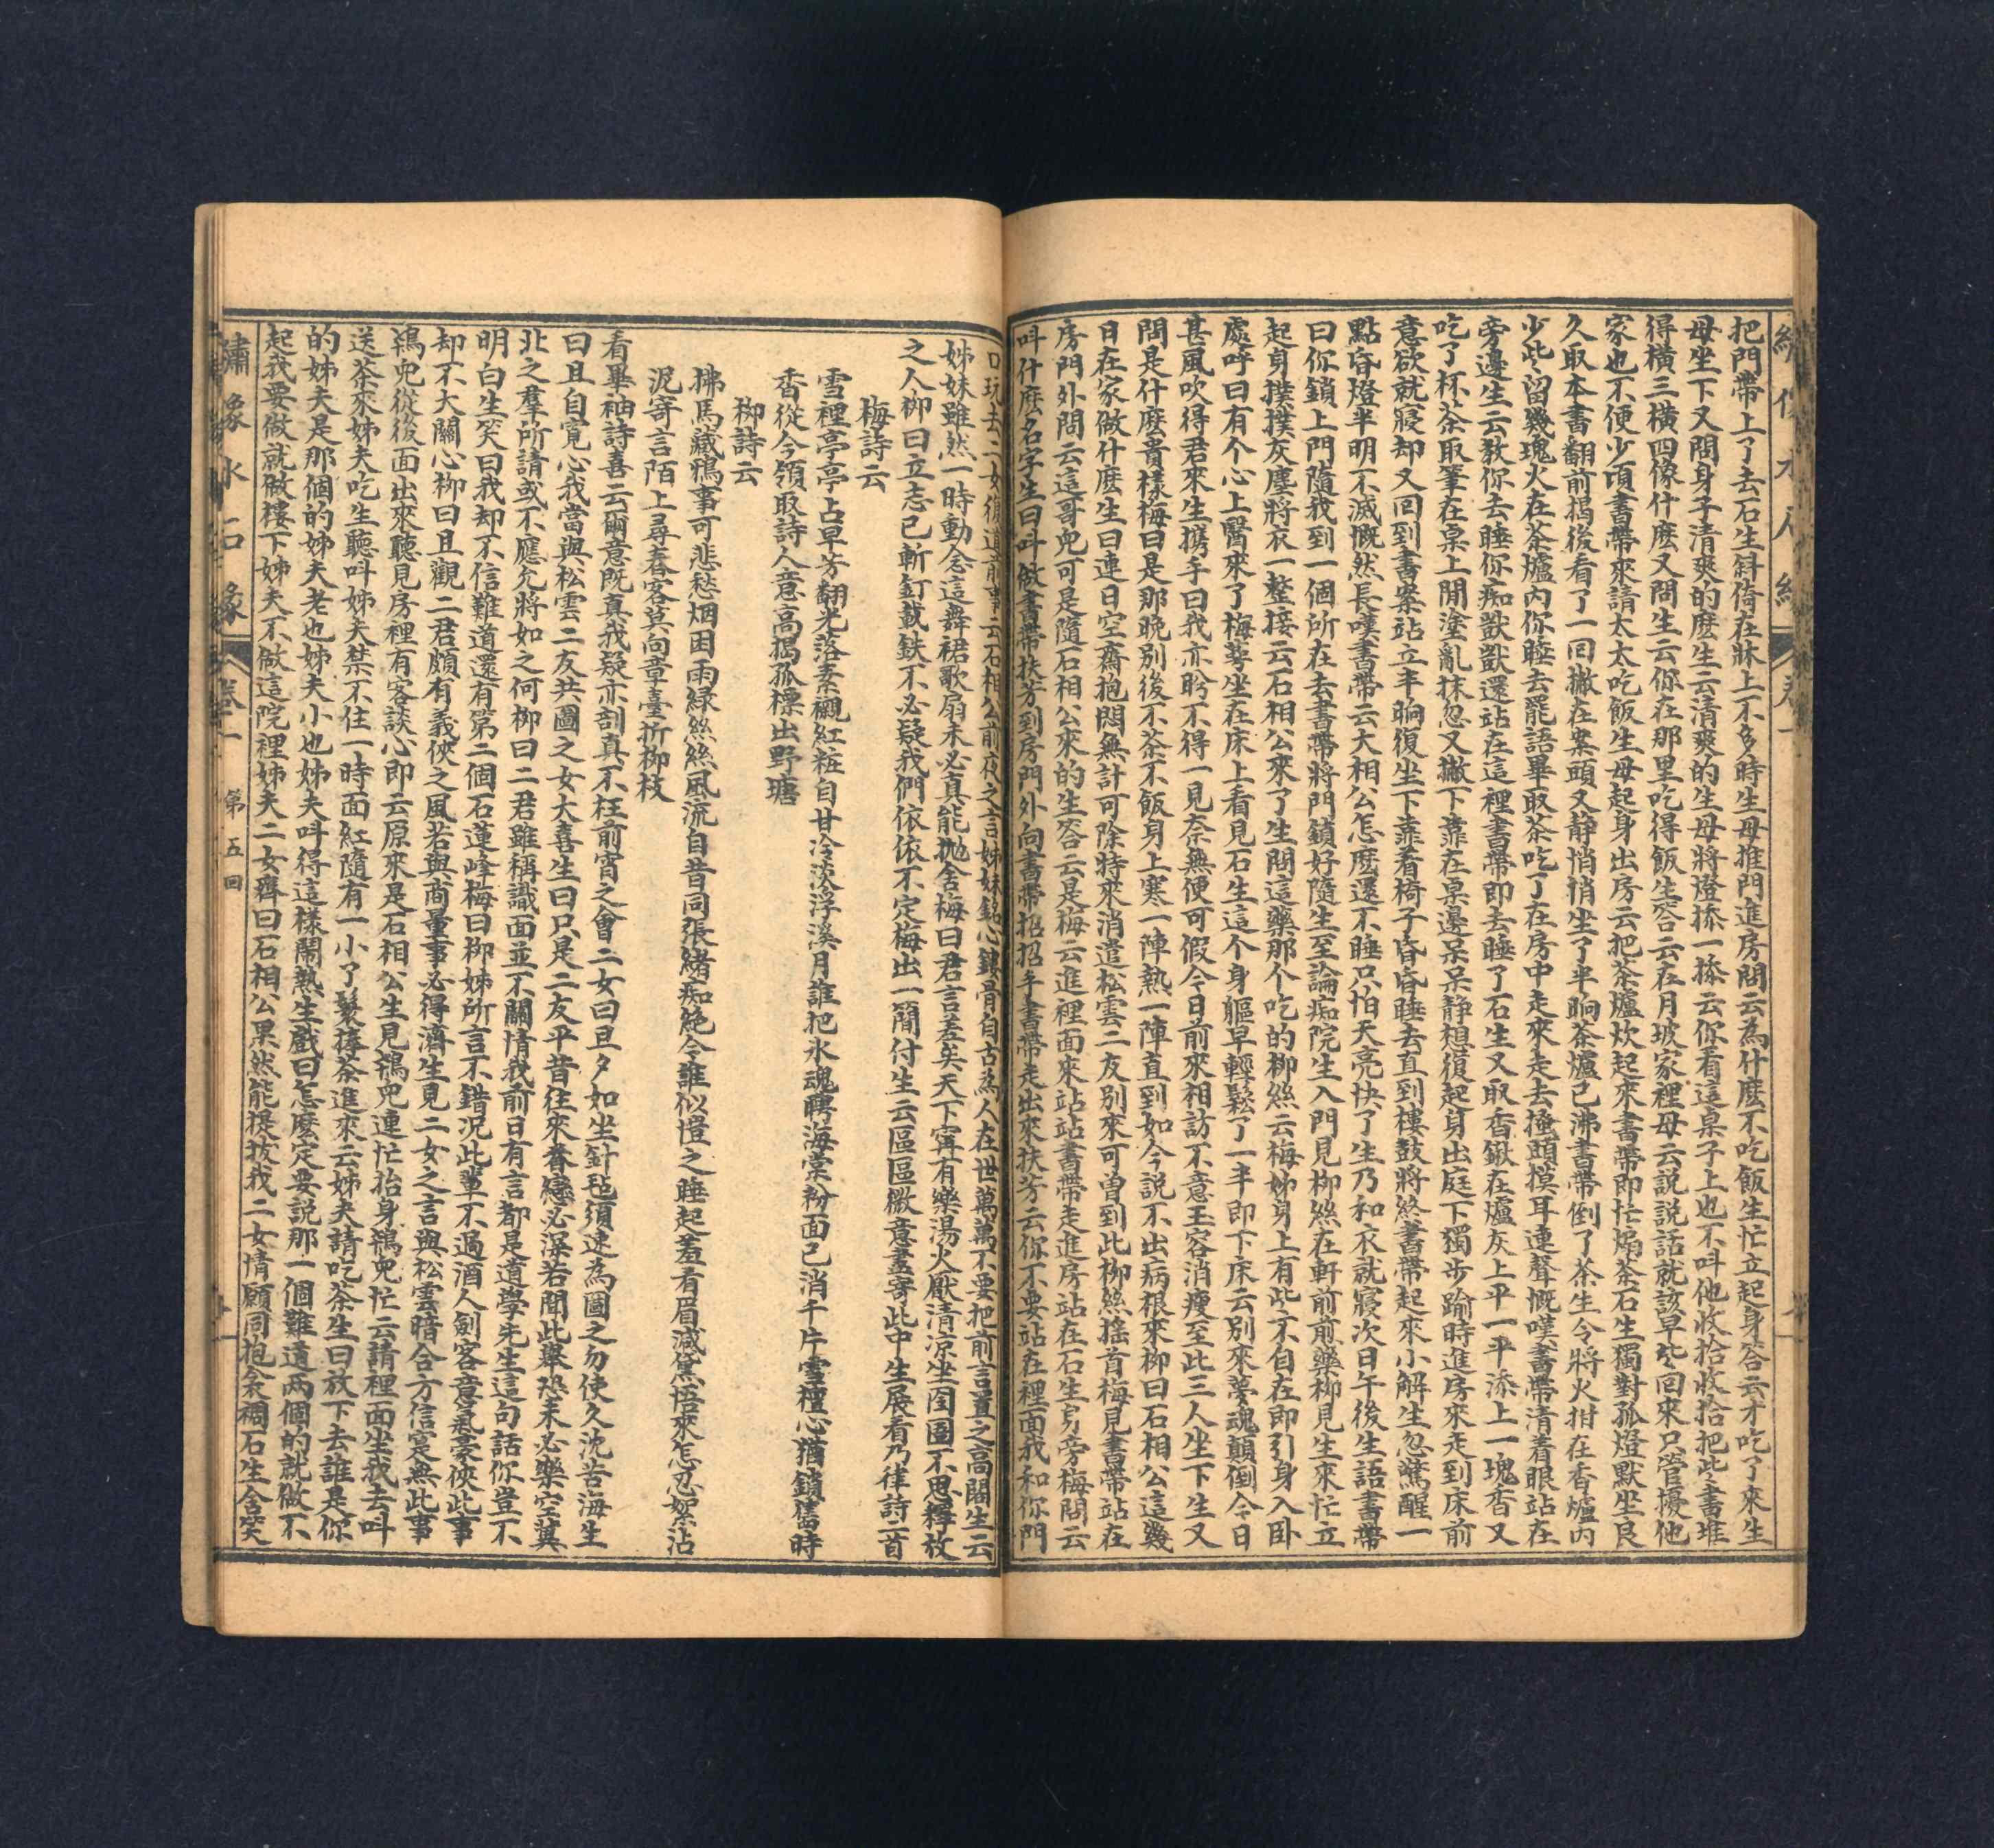 把門帶上了去石生斜倚在牀上不多時生母推門進房問云為什麽不吃飯生忙立起身答云才吃了來生
母坐下又問身子清爽的麽生云清爽的生母將燈捺一捺云你看這桌子上也不呌他收拾收拾把些書堆
得橫三橫四像什麽又問生云你在那里吃得飯生答云在月坡家裡母云説説話就該早些回來只管擾他
家也不便少項書帶來請太太吃飯生母起身出房云把茶爐炊起來書帶即忙煽茶石生獨對孤燈默坐良
久取本書翻前揭後看了一回撇在案頭又静悄悄坐了半晌茶爐已沸書帶倒了茶生令將火拑在香爐内
少些留幾塊火在茶爐内你睡去罷語畢取茶吃了在房中走來走去撓頭摸耳連聲慨嘆書帶清着眼站在
旁邊生云教你去睡你痴獃獃還站在這裡書帶即去睡了石生又取香鍬在爐灰上平一平添上一塊香又
吃了杯茶取筆在桌上閒塗亂抹忽又撇下靠在桌邊呆呆静想復起身出庭下獨步踰時進房來走到床前
意欲就寢却又回到書案站立半晌復坐下靠着椅子昏昏睡去直到樓鼓將終書帶起來小解生忽驚醒一
點昏燈半明不滅慨然長嘆書帶云大相公怎麽還不睡只怕天亮快了生乃和衣就寢次日午後生語書帶
曰你鎖上門隨我到一個所在去書帶將門鎖好隨生至論痴院生入門見柳絲在軒前煎藥柳見生來忙立
起身撲撲灰塵將衣一整接云石相公來了生問這藥那个吃的柳絲云梅姊身上有些不自在即引身入卧
處呼曰有个心上醫來了梅萼坐在床上看見石生這个身軀早輕鬆了一半即下床云别來夢魂顛倒今日
甚風吹得君來生攜手曰我亦盻不得一見奈無便可假今日前來相訪不意玉容消瘦至此三人坐下生又
問是什麽貴樣梅曰是那晚别後不茶不飯身上寒一陣熱一陣直到如今説不出病根來柳曰石相公這幾
日在家做什麽生曰連日空齋抱悶無計可除特來消遣松雲二友别來可曾到此柳絲搖首梅見書帶站在
房門外問云這哥兒可是隨石相公來的生答云是梅云進裡面來站站書帶走進房站在石生身旁梅問云
呌什麽名字生曰呌做書帶扶芳到房門外向書帶招招手書帶走出來扶芳云你不要站在裡面我和你門
口玩去二女復道前事云石相公前夜之言姊妹銘心鏤骨自古為人在世萬萬不要把前言置之高閣生云
姊妹雖然一時動念這舞裙歌扇未必真能抛舍梅曰君言差矣天下寜有樂湯火厭清凉坐囹圄不思釋放
之人柳曰立志已斬釘截鉄不必疑我們依依不定梅出一簡付生云區區微意盡寄此中生展看乃律詩二首
梅詩云
雪裡亭亭占早芳翻光落素襯紅粧自甘冷淡浮溪月誰把氷魂聘海棠粉面已消千片雪檀心猶鎖舊時
香從今領取詩人意高揭孤標出野塘
柳詩云
拂馬藏鴉事可悲愁烟困雨緑絲絲風流自昔同張緒痴絶今誰似愷之睡起羞看眉減黛悟來怎忍絮沾
泥寄言陌上尋春客莫向章臺折柳枝
看畢袖詩喜云爾意既真我疑亦剖真不枉前宵之會二女曰旦夕如坐針毡須速為圖之勿使久沈苦海生
曰且自寛心我當與松雲二友共圖之女大喜生曰只是二友平昔往來眷戀必深若聞此舉恐未必樂空冀
北之羣所請或不應允將如之何柳曰二君雖稱識面並不關情我前日有言都是道學先生這句話你豈不
明白生笑曰我却不信難道還有第二個石蓮峰梅曰柳姊所言不錯況此輩不過酒人劍客意氣豪俠此事
却不大關心柳曰且觀二君頗有義俠之風若與商量事必得濟生見二女之言與松雲暗合方信寔無此事
鴇兒從後面出來聽見房裡有客談心即云原來是石相公生見鴇兒連忙抬身鴇兒忙云請裡面坐我去呌
送茶來姊夫吃生聽呌姊夫禁不住一時面紅隨有一小了鬟捧茶進來云姊夫請吃茶生曰放下去誰是你
的姊夫是那個的姊夫老也姊夫小也姊夫呌得這樣鬧熱生戲曰怎麽定要説那一個難道兩個的就做不
起我要做就做樓下姊夫不做這院裡姊夫二女齊曰石相公果然能提拔我二女情願同抱衾裯石生含笑
繡像水石緣
卷一
第五回